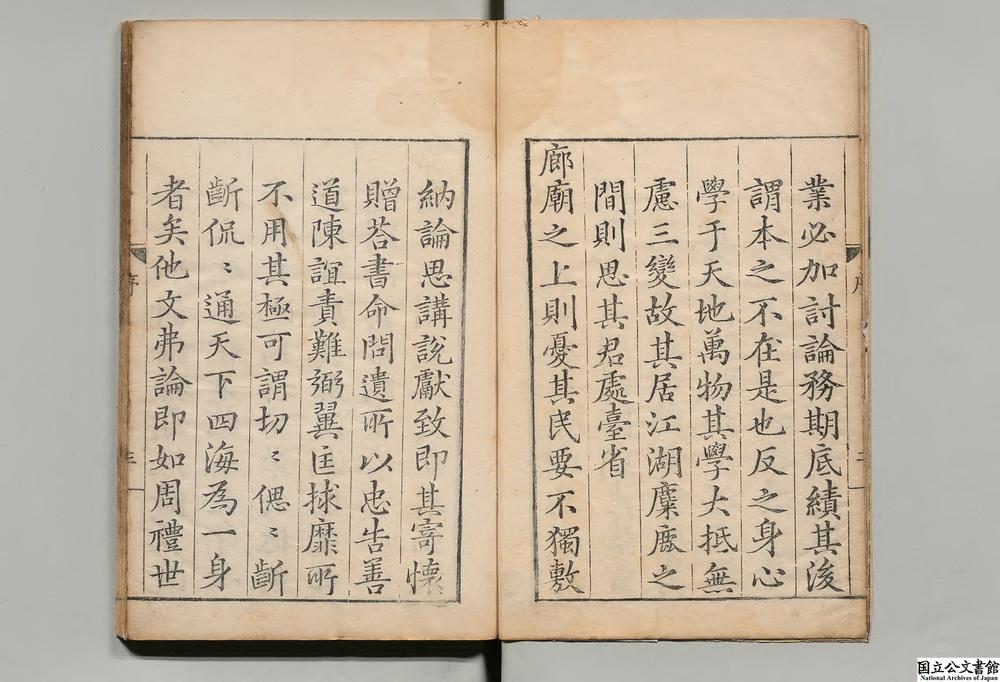 業必加討論務期底績其後
謂本之不在是也反之身心
學于天地萬物其學大抵無
慮三變故其居江湖麋鹿之
間則思其君處臺省
廊廟之上則憂其民要不獨敷
序
納論思講說獻致即其寄懷
贈荅書命問遺所以忠告善
道陳誼責難弼翼匡捄靡所
不用其極可謂切〻偲〻齗
齗侃〻通天下四海為一身
者矣他文弗論即如周禮世
序
三
国立公文書館
National Archives of Japan